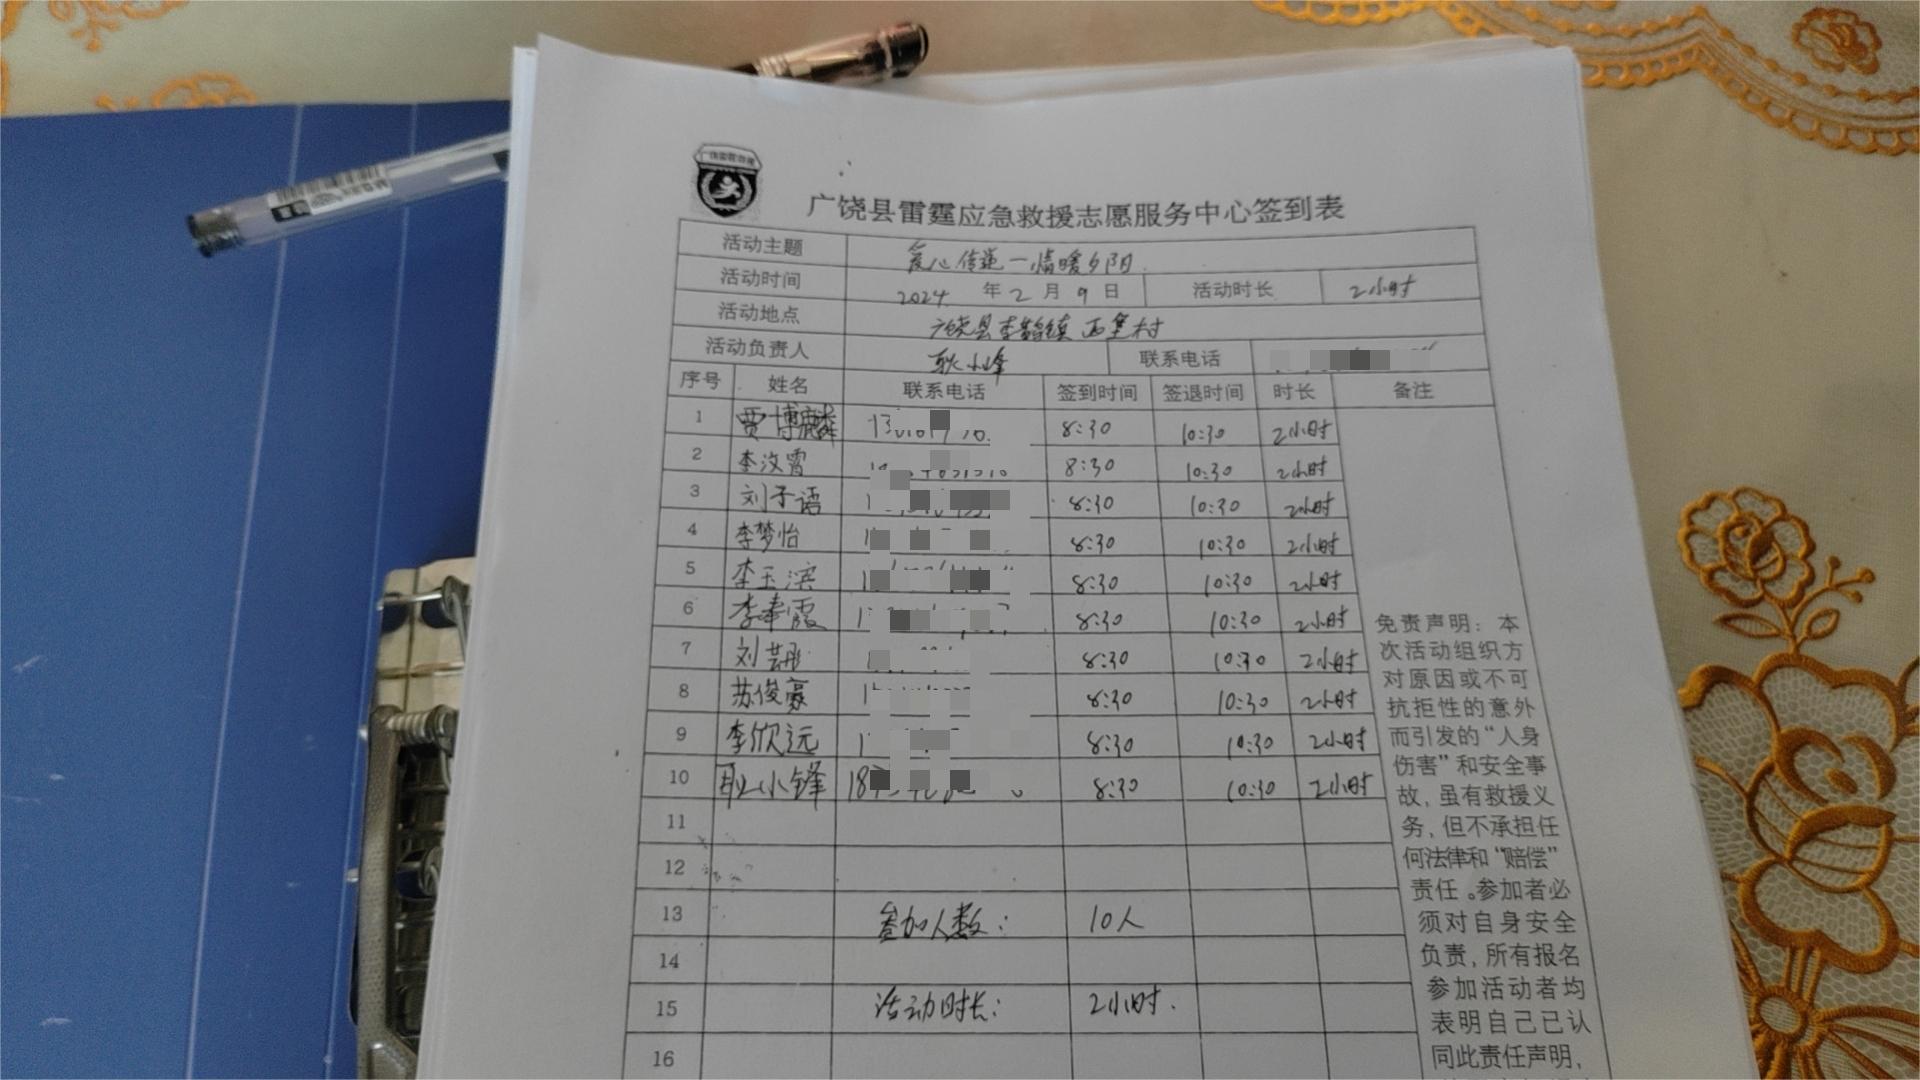 广饶县雷霆应急救援志愿服务中心签到表
活动主题 爱心传递一情暖夕阳
活动时间 2024 年 2 月 9 日 活动时长 2小时
活动地点 广饶县李鹊镇西堡村
活动负责人 耿小峰 联系电话
序号 姓名 联系电话 签到时间 签退时间 时长 备注
1 贾博麟 8:30 10:30 2小时
2 李汝霄 8:30 10:30 2小时
3 刘子语 8:30 10:30 2小时
4 李梦怡 8:30 10:30 2小时
5 李玉滨 8:30 10:30 2小时
6 李奉霞 8:30 10:30 2小时
7 刘芸彤 8:30 10:30 2小时
8 苏俊豪 8:30 10:30 2小时
9 李欣远 8:30 10:30 2小时
10 耿小锋 8:30 10:30 2小时
11
12
13 参加人数: 10人
14
15 活动时长: 2小时.
16
免责声明: 本
次活动组织方
对原因或不可
抗拒性的意外
而引发的“人身
伤害”和安全事
故, 虽有救援义
务, 但不承担任
何法律和“赔偿”
责任。参加者必
须对自身安全
负责, 所有报名
参加活动者均
表明自己已认
同此责任声明,